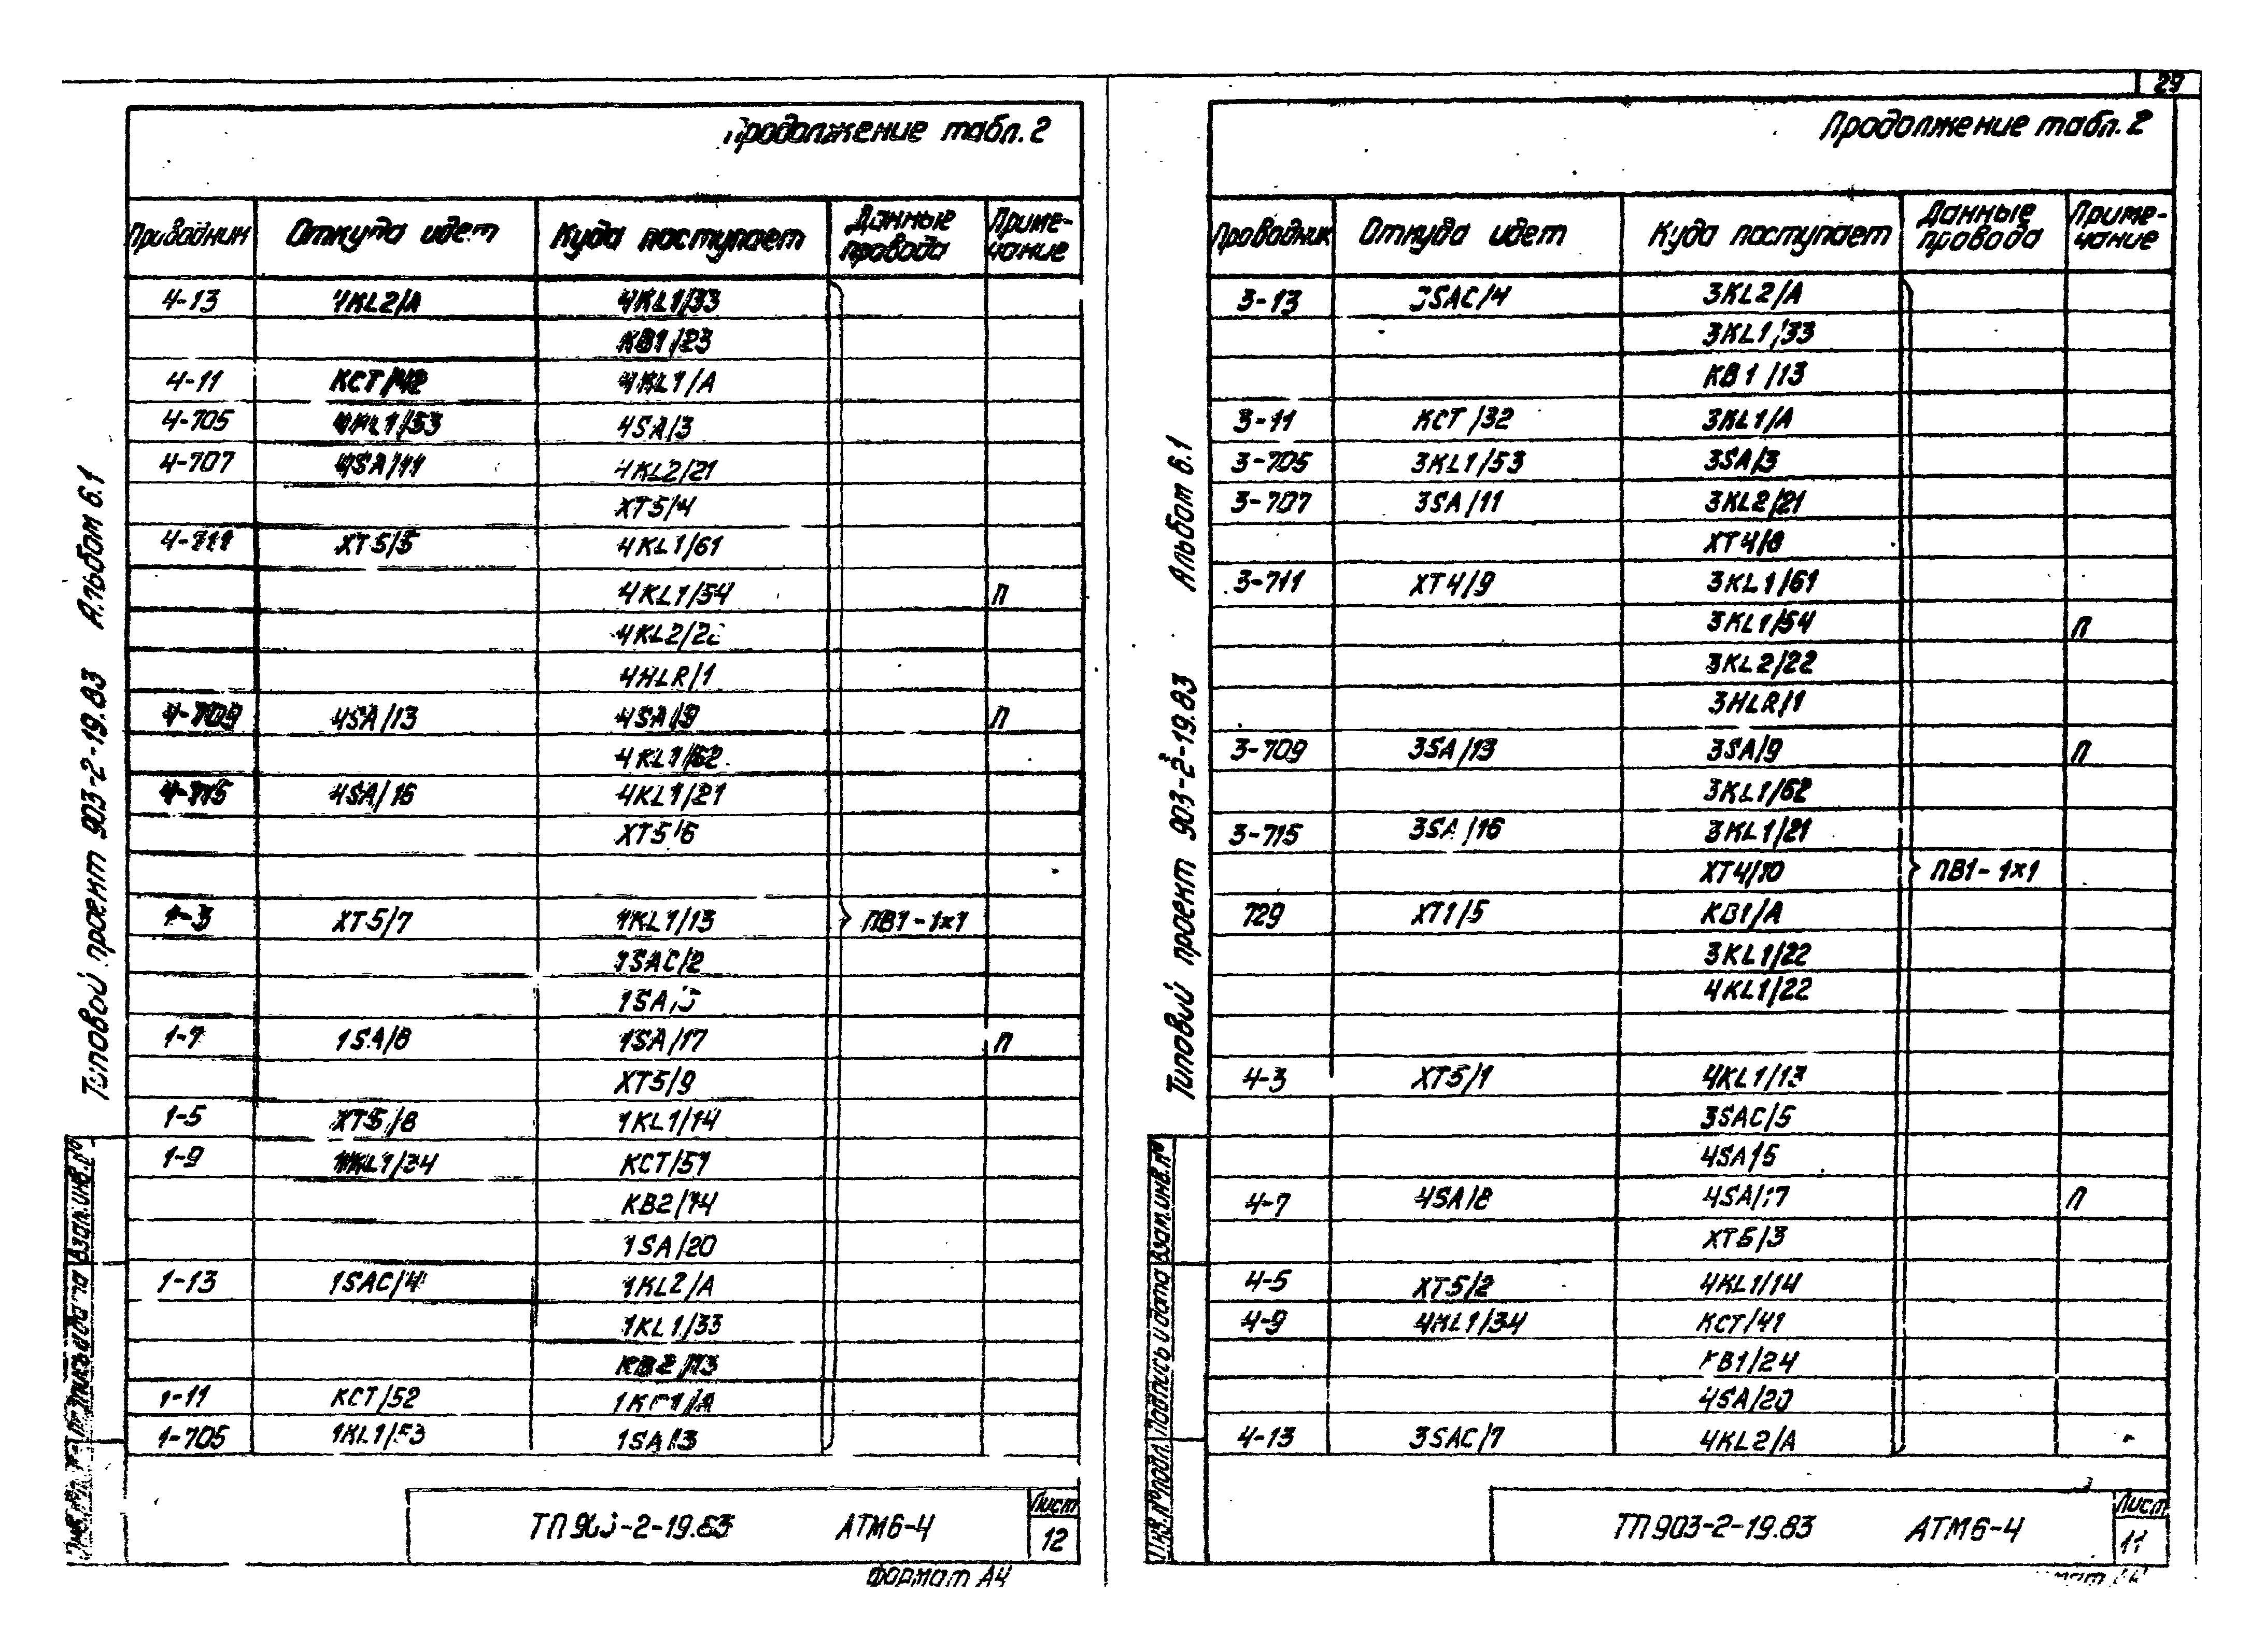 29
Продолжение табл. 2
Проводник Откуда идет Куда поступает Данные провода Примечание
4-13 4KL2/А 4KL1/33
КВ1/23
4-11 КСТ/42 4KL1/А
4-705 4KL1/53 4SA/3
4-707 4SA/11 4KL2/21
ХТ5/4
4-711 ХТ5/5 4KL1/61
4KL1/54 П
4KL2/22
4HLR/1
4-709 4SA/13 4SA/9 П
4KL1/62
4-715 4SA/16 4KL1/21
ХТ5/6
1-3 ХТ5/7 1KL1/13 ПВ1-1×1
1SAC/2
1SA/5
1-7 1SA/8 1SA/17 П
ХТ5/9
1-5 ХТ5/8 1KL1/14
1-9 1KL1/34 КСТ/51
КВ2/14
1SA/20
1-13 1SAC/4 1KL2/А
1KL1/33
КВ2/13
1-11 КСТ/52 1KL1/А
1-705 1KL1/53 1SA/3
Типовой проект 903-2-19.83 Альбом 6.1
взам.инв.№
ТП 903-2-19.83 АТМ6-4
Лист
12
Формат А4
Продолжение табл. 2
Проводник Откуда идет Куда поступает Данные провода Примечание
3-13 3SAC/4 3KL2/А
3KL1/33
КВ1/13
3-11 КСТ/32 3KL1/А
3-705 3KL1/53 3SA/3
3-707 3SA/11 3KL2/21
ХТ4/8
3-711 ХТ4/9 3KL1/61
3KL1/54 П
3KL2/22
3HLR/1
3-709 3SA/13 3SA/9 П
3KL1/62
3-715 3SA/16 3KL1/21
ХТ4/10 ПВ1-1×1
729 ХТ1/5 КВ1/А
3KL1/22
4KL1/22
4-3 ХТ5/1 4KL1/13
3SAC/5
4SA/5
4-7 4SA/8 4SA/17 П
ХТ5/3
4-5 ХТ5/2 4KL1/14
4-9 4KL1/34 КСТ/41
КВ1/24
4SA/20
4-13 3SAC/7 4KL2/А
Типовой проект 903-2-19.83 Альбом 6.1
Инв.№подл. Подпись и дата Взам.инв.№
ТП 903-2-19.83 АТМ6-4
Лист
11